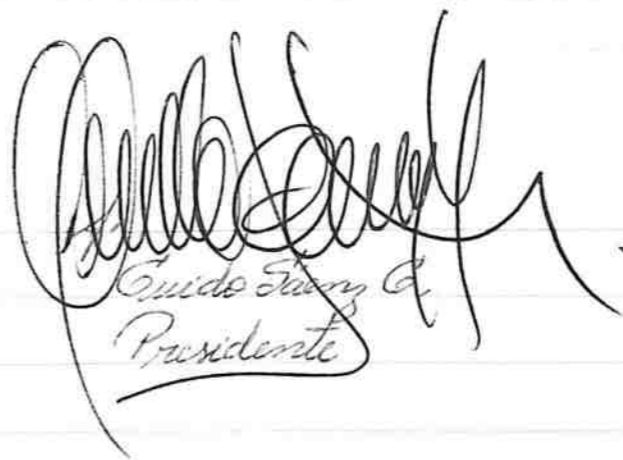 Guido Sáenz G.
Presidente